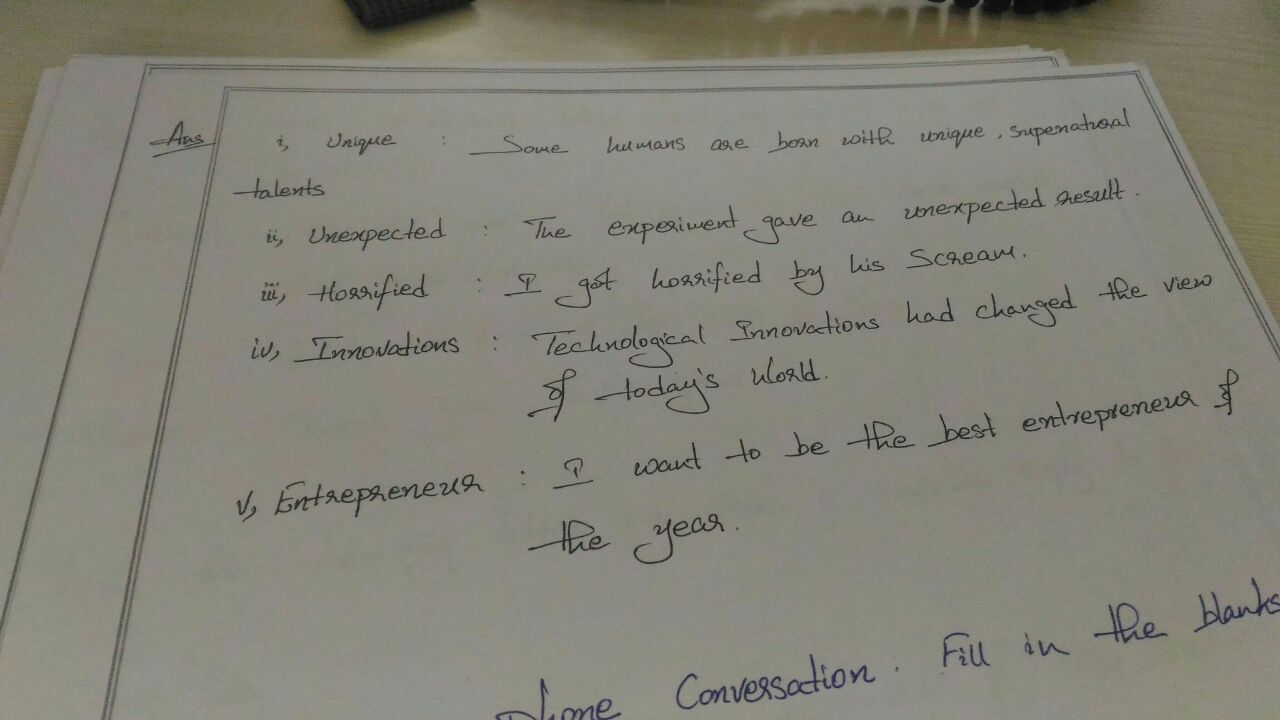 Ans i, Unique : Some humans are born with unique, supernatural
talents
ii, Unexpected : The experiment gave an unexpected result.
iii, Horrified : I got horrified by his Scream.
iv, Innovations : Technological Innovations had changed the view
of today's world.
v, Entrepreneur : I want to be the best entrepreneur of
the year.
Phone Conversation. Fill in the blanks